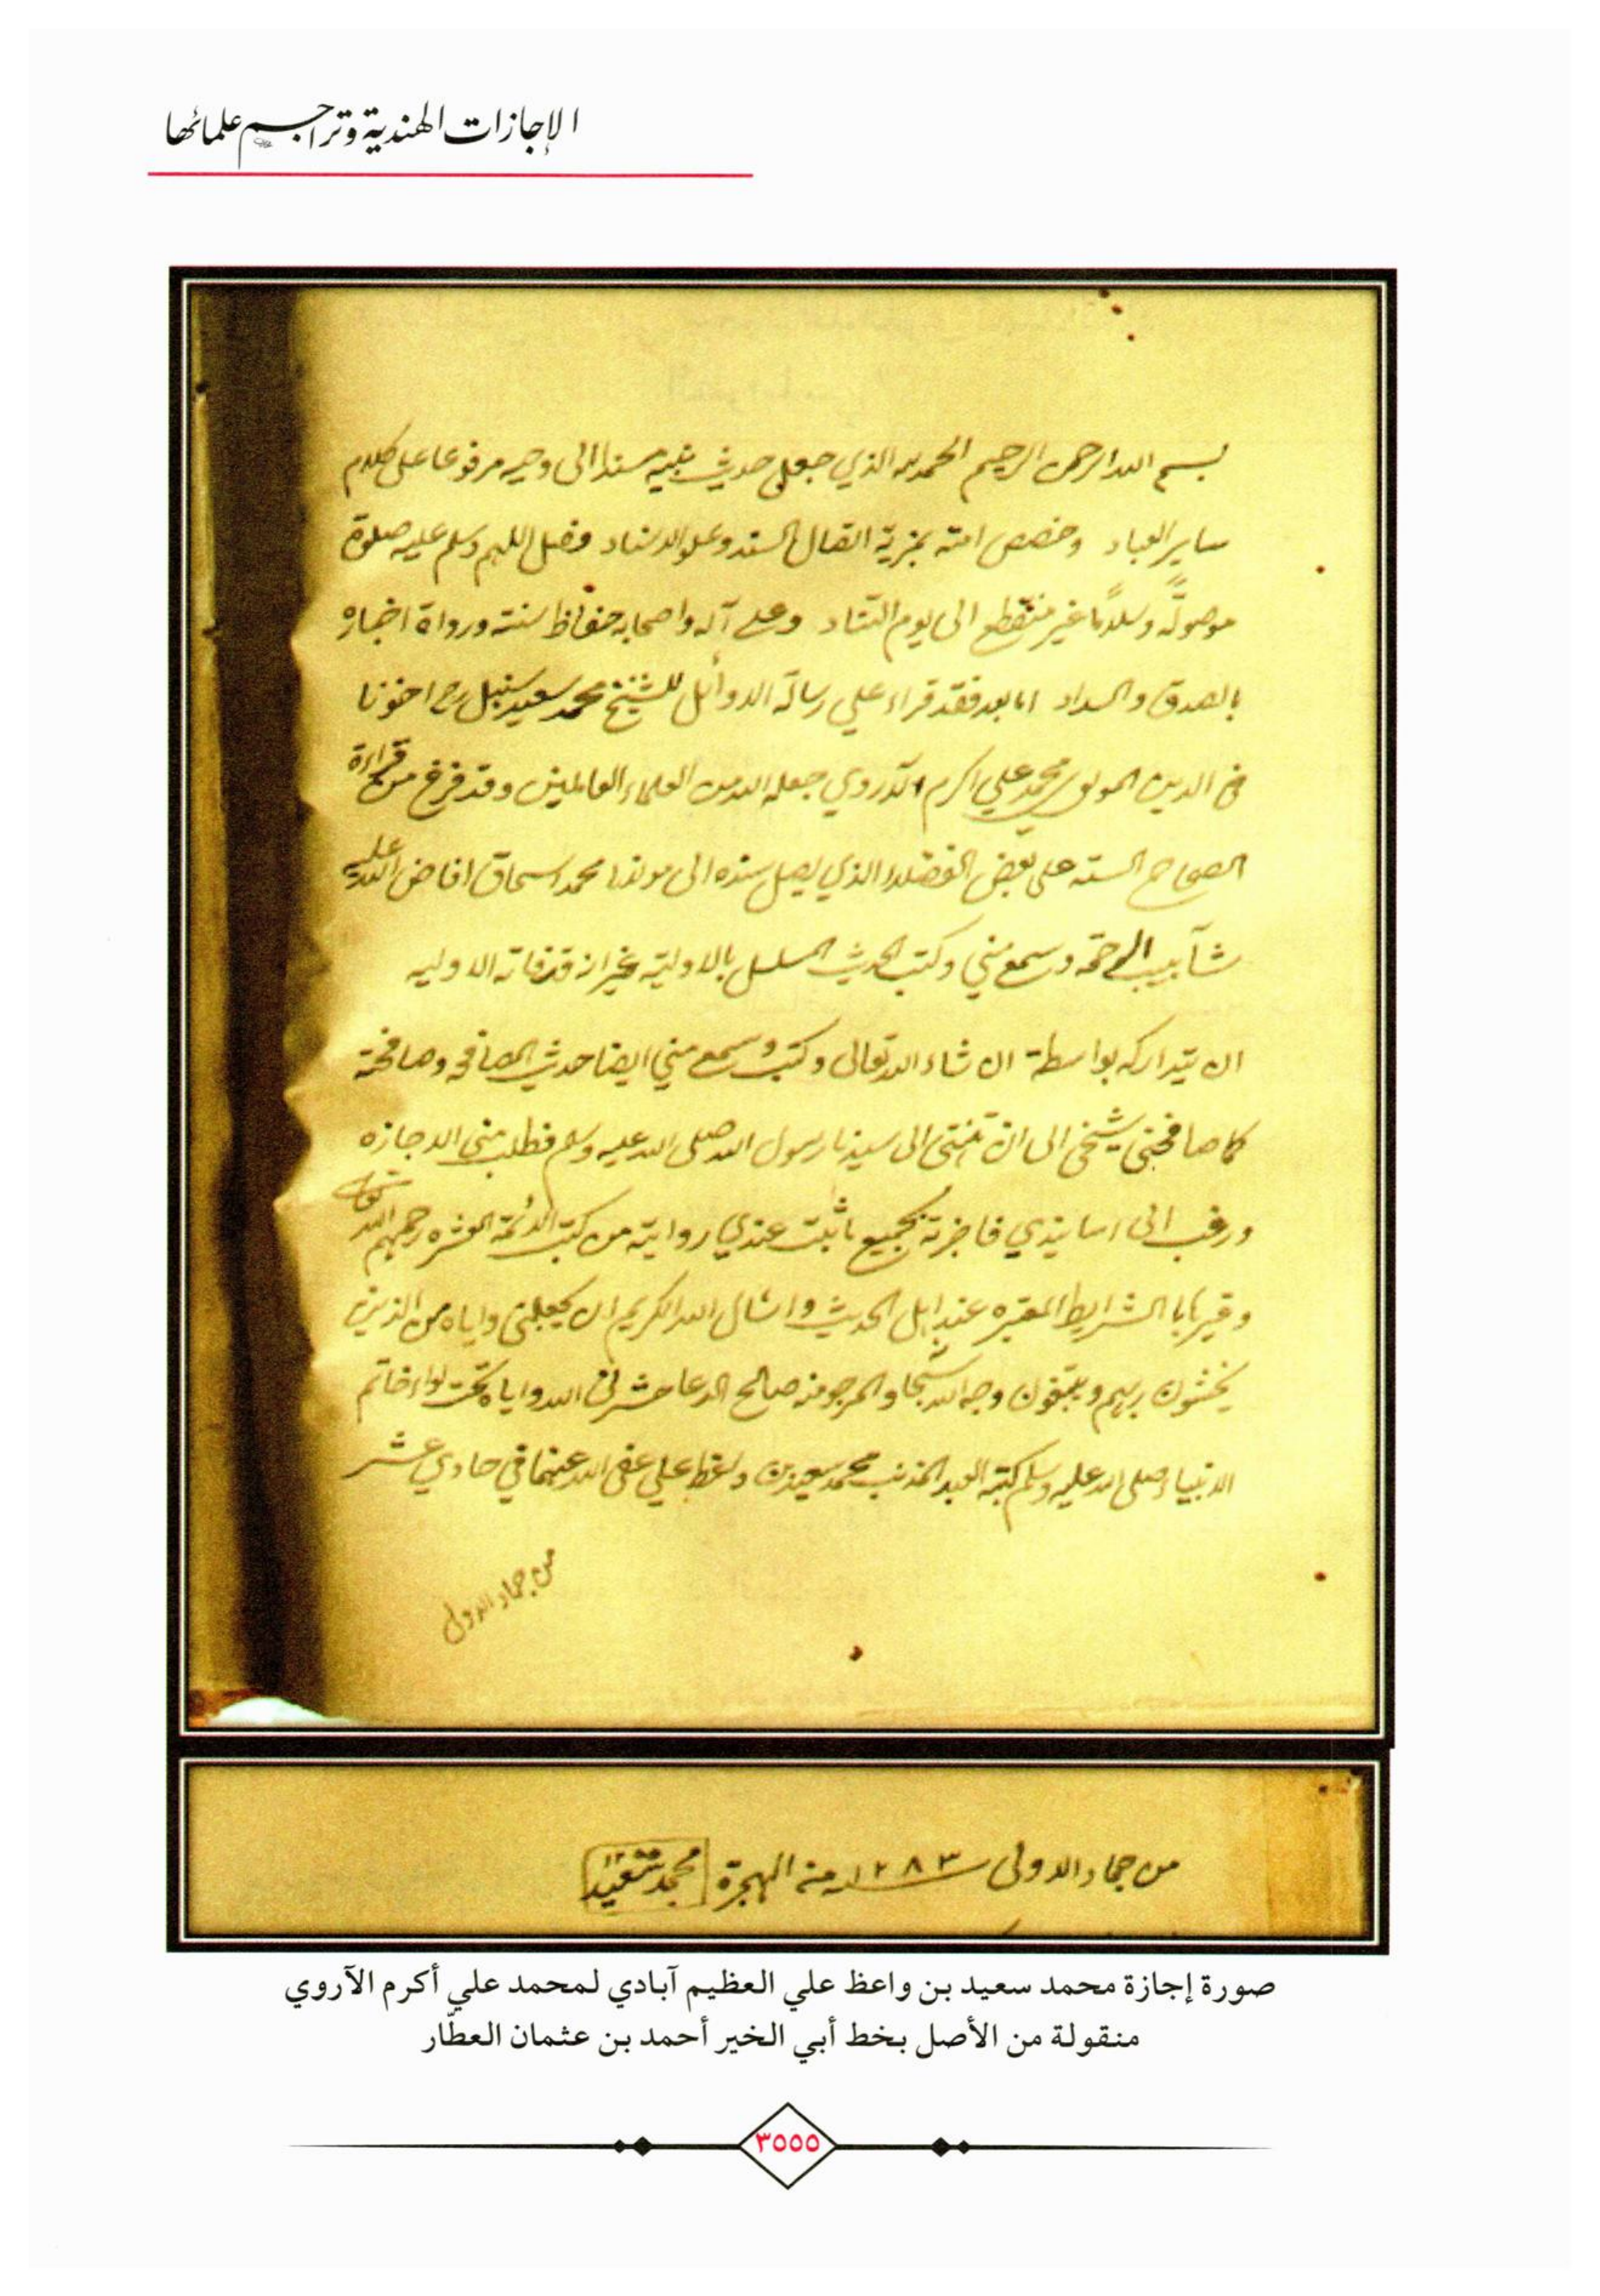 الإجازات الهندية وتراجم علمائها
بسم الله الرحمن الرحيم الحمد لله الذي جعل حديث نبيه مسندا الى وحيه مرفوعا على كلام
ساير العباد وخصص امته بمزية اتصال السند وعلو الاسناد فصل اللهم وسلم عليه صلوة
موصولةً وسلاماً غير منقطع الى يوم التناد وعلى آله واصحابه حفاظ سنته ورواة اخباره
بالصدق والسداد اما بعد فقد قراء علي رسالة الاوائل للشيخ محمد سعيد سنبل رح اخونا
في الدين المولوي محمد علي اكرم الآروي جعله الله من العلماء العالمين وقد فرغ من قراءة
الصحاح الستة على بعض الفضلاء الذي يصل سنده الى مولانا محمد اسحاق افاض الله عليه
شآبيب الرحمة وسمع مني وكتب الحديث المسلسل بالاولية غير انه قد فاته الاوليه
ان يتداركه بواسطة ان شاء الله تعالى وكتب وسمع مني ايضا حديث المصافحة وصافحته
كما صافحني شيخي الى ان تنتهى الى سيدنا رسول الله صلى الله عليه وسلم فطلب مني الاجازه
ورغب الى اسانيدي فاجزته بجميع ما ثبت عندي روايته من كتب الائمة العشره رحمهم الله تعالى
وغيرها بالشرايط المعتبره عند اهل الحديث واسال الله الكريم ان يجعلني واياه من الذين
يخشون ربهم ويبتغون وجه الله والمرجو منه صالح الدعا حشرني الله واياه تحت لواء خاتم
الانبياء صلى الله عليه وسلم كتبه العبد المذنب محمد سعيد بن واعظ علي عفى الله عنهما في حادي عشر
من جماد الاولى
من جماد الاولى سنه ١٢٨٣ من الهجرة محمد سعيد
صورة إجازة محمد سعيد بن واعظ علي العظيم آبادي لمحمد علي أكرم الآروي
منقولة من الأصل بخط أبي الخير أحمد بن عثمان العطّار
٣٥٥٥